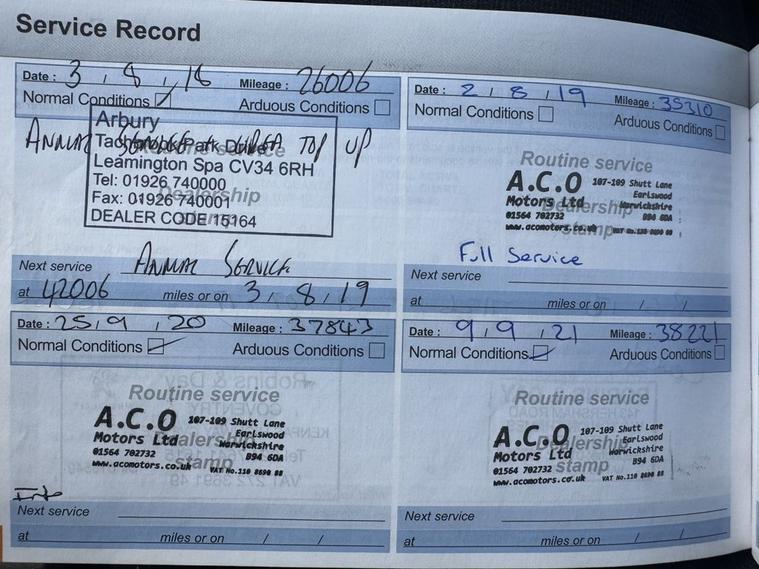 Service Record
Date : 3 , 8 , 18 Mileage : 26006
Normal Conditions Arduous Conditions
ANNUAL SERVICE TOP UP
Arbury
Tachbrook Park Drive
Leamington Spa CV34 6RH
Tel: 01926 740000
Fax: 01926 740001
DEALER CODE 15164
Next service ANNUAL SERVICE
at 42006 miles or on 3 , 8 , 19
Date : 2 , 8 , 19 Mileage : 35310
Normal Conditions Arduous Conditions
Routine service
Dealership
stamp
A.C.O
Motors Ltd
01564 702732
www.acomotors.co.uk
107-109 Shutt Lane
Earlswood
Warwickshire
B94 6DA
VAT No.110 8690 88
Full Service
Next service
at miles or on / /
Date : 25 , 9 , 20 Mileage : 37843
Normal Conditions Arduous Conditions
Routine service
Dealership
stamp
A.C.O
Motors Ltd
01564 702732
www.acomotors.co.uk
107-109 Shutt Lane
Earlswood
Warwickshire
B94 6DA
VAT No.110 8690 88
Next service
at miles or on / /
Date : 9 , 9 , 21 Mileage : 38221
Normal Conditions Arduous Conditions
Routine service
Dealership
stamp
A.C.O
Motors Ltd
01564 702732
www.acomotors.co.uk
107-109 Shutt Lane
Earlswood
Warwickshire
B94 6DA
VAT No.110 8690 88
Next service
at miles or on / /